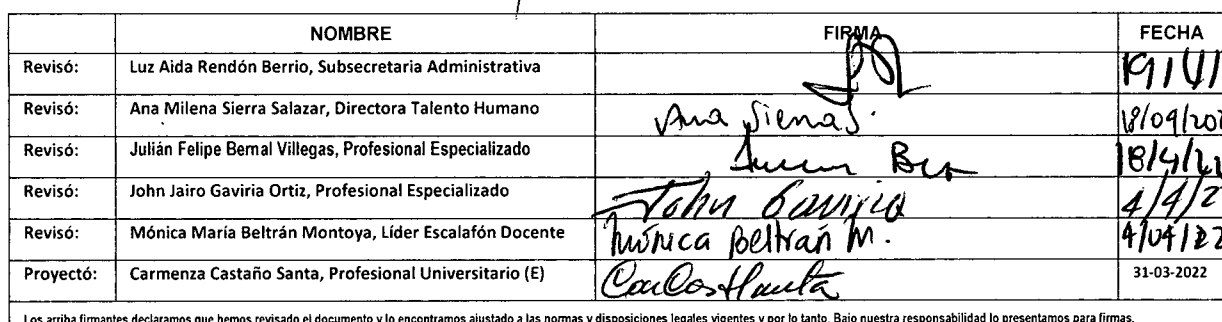 NOMBRE FIRMA FECHA
Revisó: Luz Aida Rendón Berrio, Subsecretaria Administrativa
Revisó: Ana Milena Sierra Salazar, Directora Talento Humano Ana Sierra S. 18/09/202
Revisó: Julián Felipe Bernal Villegas, Profesional Especializado 18/4/22
Revisó: John Jairo Gaviria Ortiz, Profesional Especializado John Gaviria 4/4/2
Revisó: Mónica María Beltrán Montoya, Líder Escalafón Docente Mónica Beltrán M. 4/04/22
Proyectó: Carmenza Castaño Santa, Profesional Universitario (E) 31-03-2022
Los arriba firmantes declaramos que hemos revisado el documento y lo encontramos ajustado a las normas y disposiciones legales vigentes y por lo tanto. Bajo nuestra responsabilidad lo presentamos para firmas.